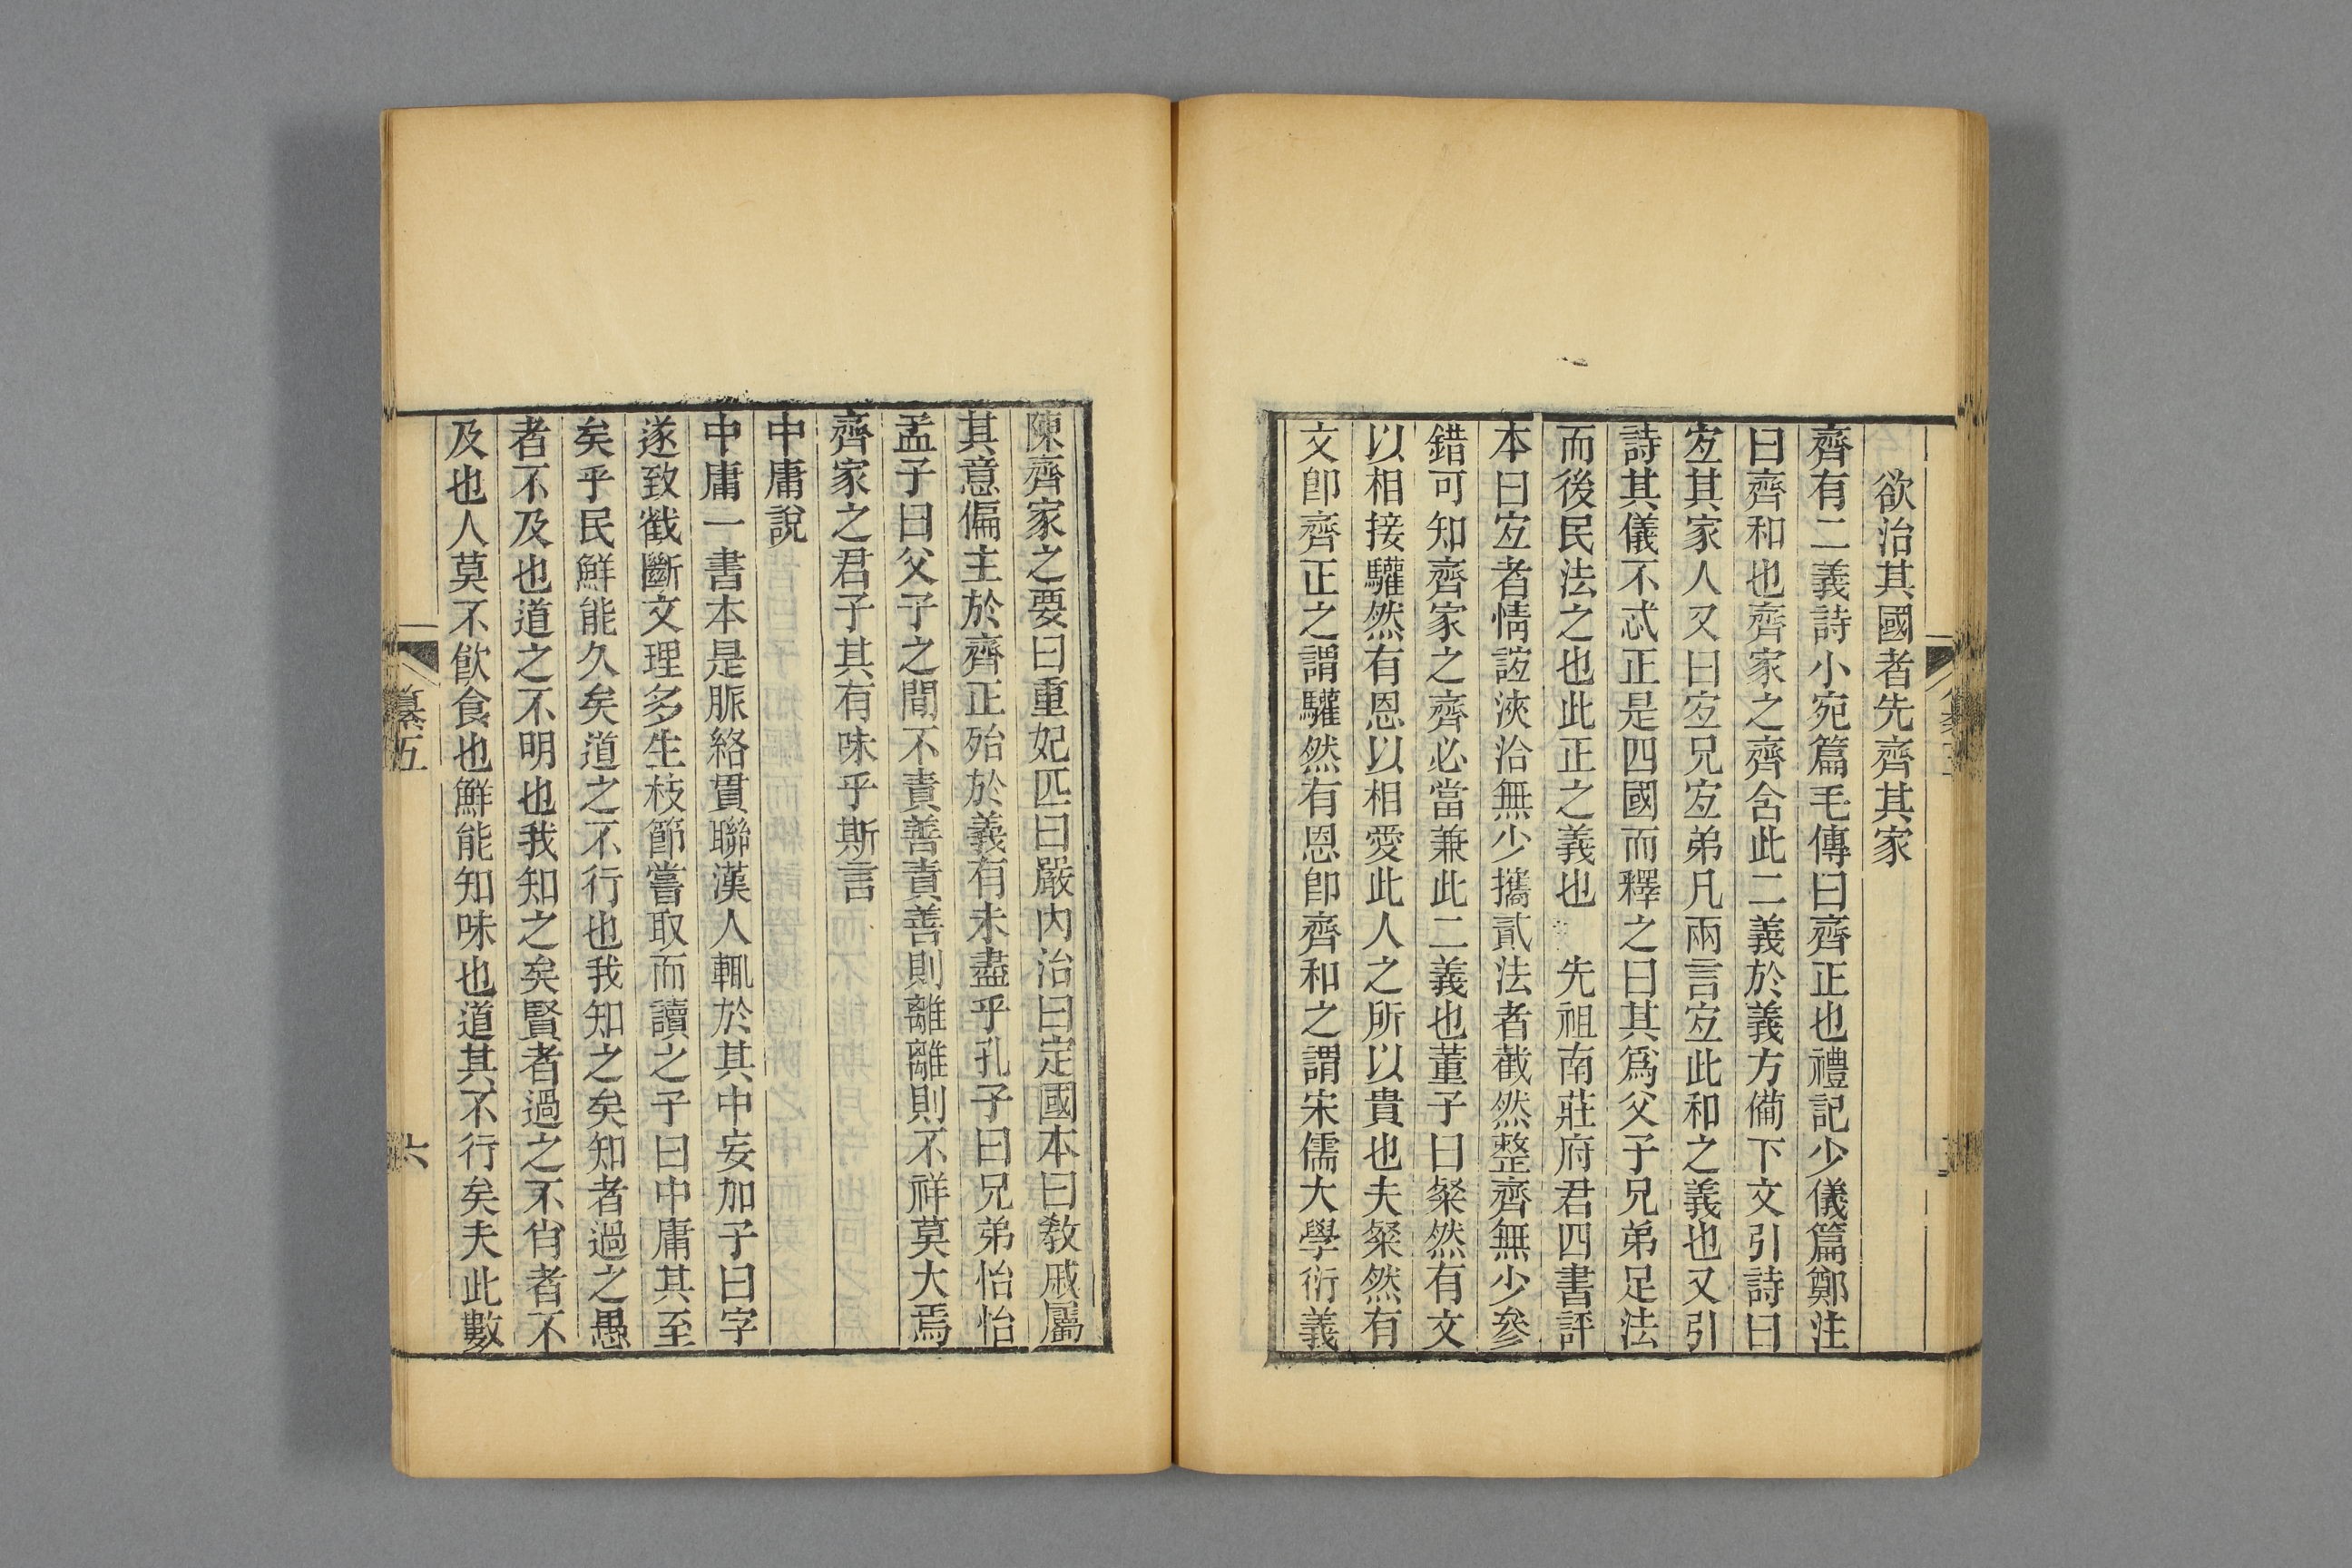 欲治其國者先齊其家
齊有二義詩小宛篇毛傳曰齊正也禮記少儀篇鄭注
曰齊和也齊家之齊含此二義於義方備下文引詩曰
宐其家人又曰宐兄宐弟凡兩言宐此和之義也又引
詩其儀不忒正是四國而釋之曰其爲父子兄弟足法
而後民法之也此正之義也　先祖南莊府君四書評
本曰宐者情誼浹洽無少攜貳法者截然整齊無少參
錯可知齊家之齊必當兼此二義也董子曰粲然有文
以相接驩然有恩以相愛此人之所以貴也夫粲然有
文卽齊正之謂驩然有恩卽齊和之謂宋儒大學衍義
陳齊家之要曰重妃匹曰嚴內治曰定國本曰敎戚屬
其意偏主於齊正殆於義有未盡乎孔子曰兄弟怡怡
孟子曰父子之間不責善責善則離離則不祥莫大焉
齊家之君子其有味乎斯言
中庸說
中庸一書本是脈絡貫聯漢人輒於其中妄加子曰字
遂致截斷文理多生枝節嘗取而讀之子曰中庸其至
矣乎民鮮能久矣道之不行也我知之矣知者過之愚
者不及也道之不明也我知之矣賢者過之不肖者不
及也人莫不飮食也鮮能知味也道其不行矣夫此數
纂五
六